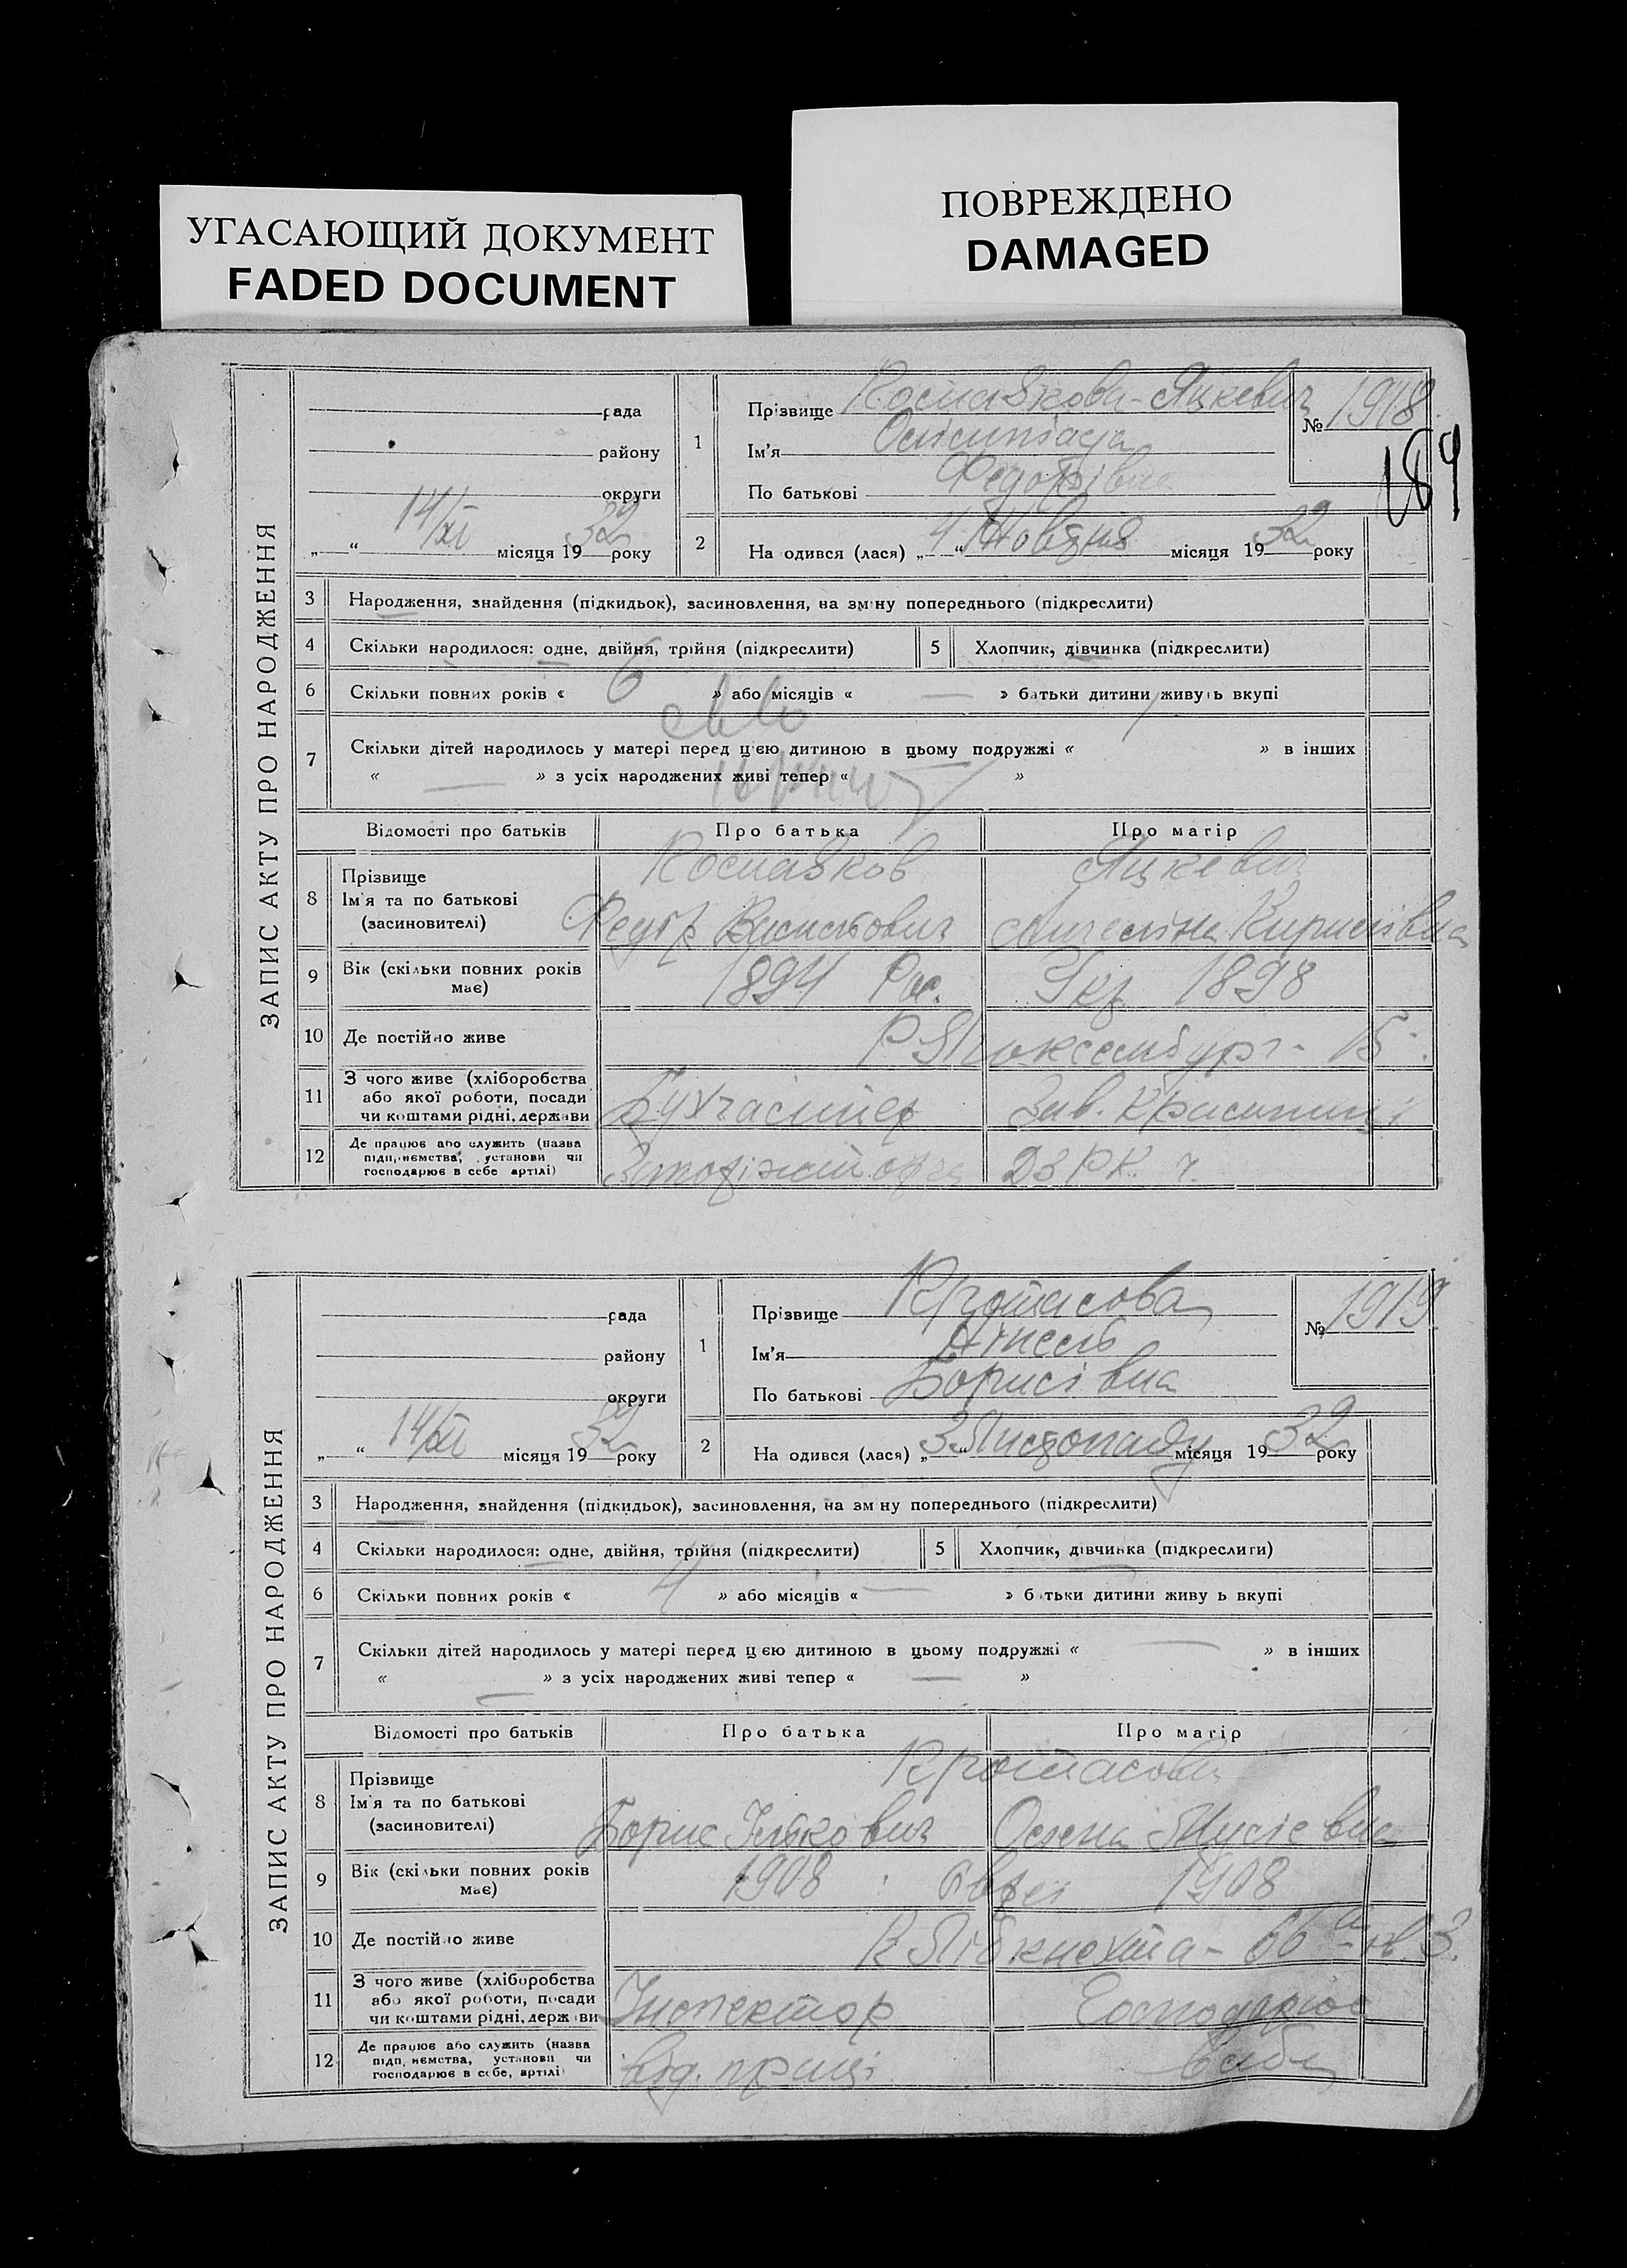 УГАСАЮЩИЙ ДОКУМЕНТ
FADED DOCUMENT
ПОВРЕЖДЕНО
DAMAGED
ЗАПИС АКТУ ПРО НАРОДЖЕННЯ
рада
району
округи
„ “ 14/XI місяця 1932 року
1
Прізвище -Яцкевич
Ім'я
По батькові Федорівна
№ 1918
184
2
На одився (лася) „4“ Жовтня місяця 1932 року
3 Народження, знайдення (підкидьок), засиновлення, на зміну попереднього (підкреслити)
4 Скільки народилося: одне, двійня, трійня (підкреслити)
5 Хлопчик, дівчинка (підкреслити)
6 Скільки повних років « 6 » або місяців « — » батьки дитини живуть вкупі
7 Скільки дітей народилось у матері перед цією дитиною в цьому подружжі « » в інших
« — » з усіх народжених живі тепер « »
Відомості про батьків
Про батька
Про матір
8 Прізвище
Ім'я та по батькові
(засновителі)
Яцкевич
Ангеліна Кирилівна
9 Вік (скільки повних років має)
1894 Рос.
Укр 1898
10 Де постійно живе
Р. Люксембург - 15
11 З чого живе (хліборобства
або якої роботи, посади
чи коштами рідні, держави
Бухгалтер
Зав.
12 Де працює або служить (назва
підприємства, установи чи
господарює в себе артілі)
ЗАПИС АКТУ ПРО НАРОДЖЕННЯ
рада
району
округи
„ “ 14/XI місяця 1932 року
1
Прізвище Кротасова
Ім'я Нінель
По батькові Борисівна
№ 1919
2
На одився (лася) „3“ Листопаду місяця 1932 року
3 Народження, знайдення (підкидьок), засиновлення, на зміну попереднього (підкреслити)
4 Скільки народилося: одне, двійня, трійня (підкреслити)
5 Хлопчик, дівчинка (підкреслити)
6 Скільки повних років « 4 » або місяців « — » батьки дитини живуть вкупі
7 Скільки дітей народилось у матері перед цією дитиною в цьому подружжі « — » в інших
« — » з усіх народжених живі тепер « — »
Відомості про батьків
Про батька
Про матір
8 Прізвище
Ім'я та по батькові
(засиновителі)
Кротасови
Борис Ількович
Олена Мусіевна
9 Вік (скільки повних років має)
1908 Євреї 1908
10 Де постійно живе
К Лібкнехта - 66а кв. 3.
11 З чого живе (хліборобства
або якої роботи, посади
чи коштами рідні, держави
Інспектор
Господарює
12 Де працює або служить (назва
підприємства, установи чи
господарює в себе, артілі)
Від. праці